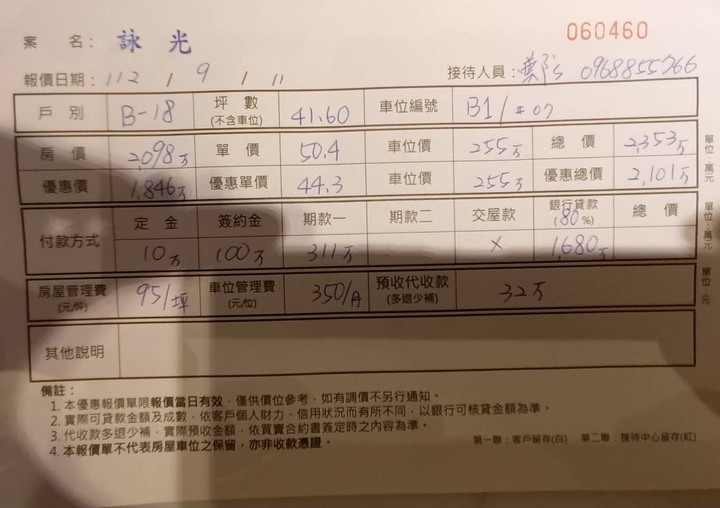 060460
案 名： 詠 光
報價日期：112 / 9 / 11 接待人員： 0968855766
戶 別 B-18 坪 數 (不含車位) 41.60 車位編號 B1/#07
房 價 2,098万 單 價 50.4 車位價 255万 總 價 2,353万
優惠價 1,846万 優惠單價 44.3 車位價 255万 優惠總價 2,101万
單位：萬元
付款方式 定 金 簽約金 期款一 期款二 交屋款 銀行貸款 (80%) 總 價
10万 100万 311万 × 1,680万
單位：萬元
房屋管理費 (元/坪) 95/坪 車位管理費 (元/位) 350/月 預收代收款 (多退少補) 32万
單位：元
其他說明
備註：
1. 本優惠報價單限報價當日有效，僅供價位參考，如有調價不另行通知。
2. 實際可貸款金額及成數，依客戶個人財力、信用狀況而有所不同，以銀行可核貸金額為準。
3. 代收款多退少補，實際預收金額，依買賣合約書簽定時之內容為準。
4. 本報價單不代表房屋車位之保留，亦非收款憑證。
第一聯：客戶留存(白) 第二聯：接待中心留存(紅)